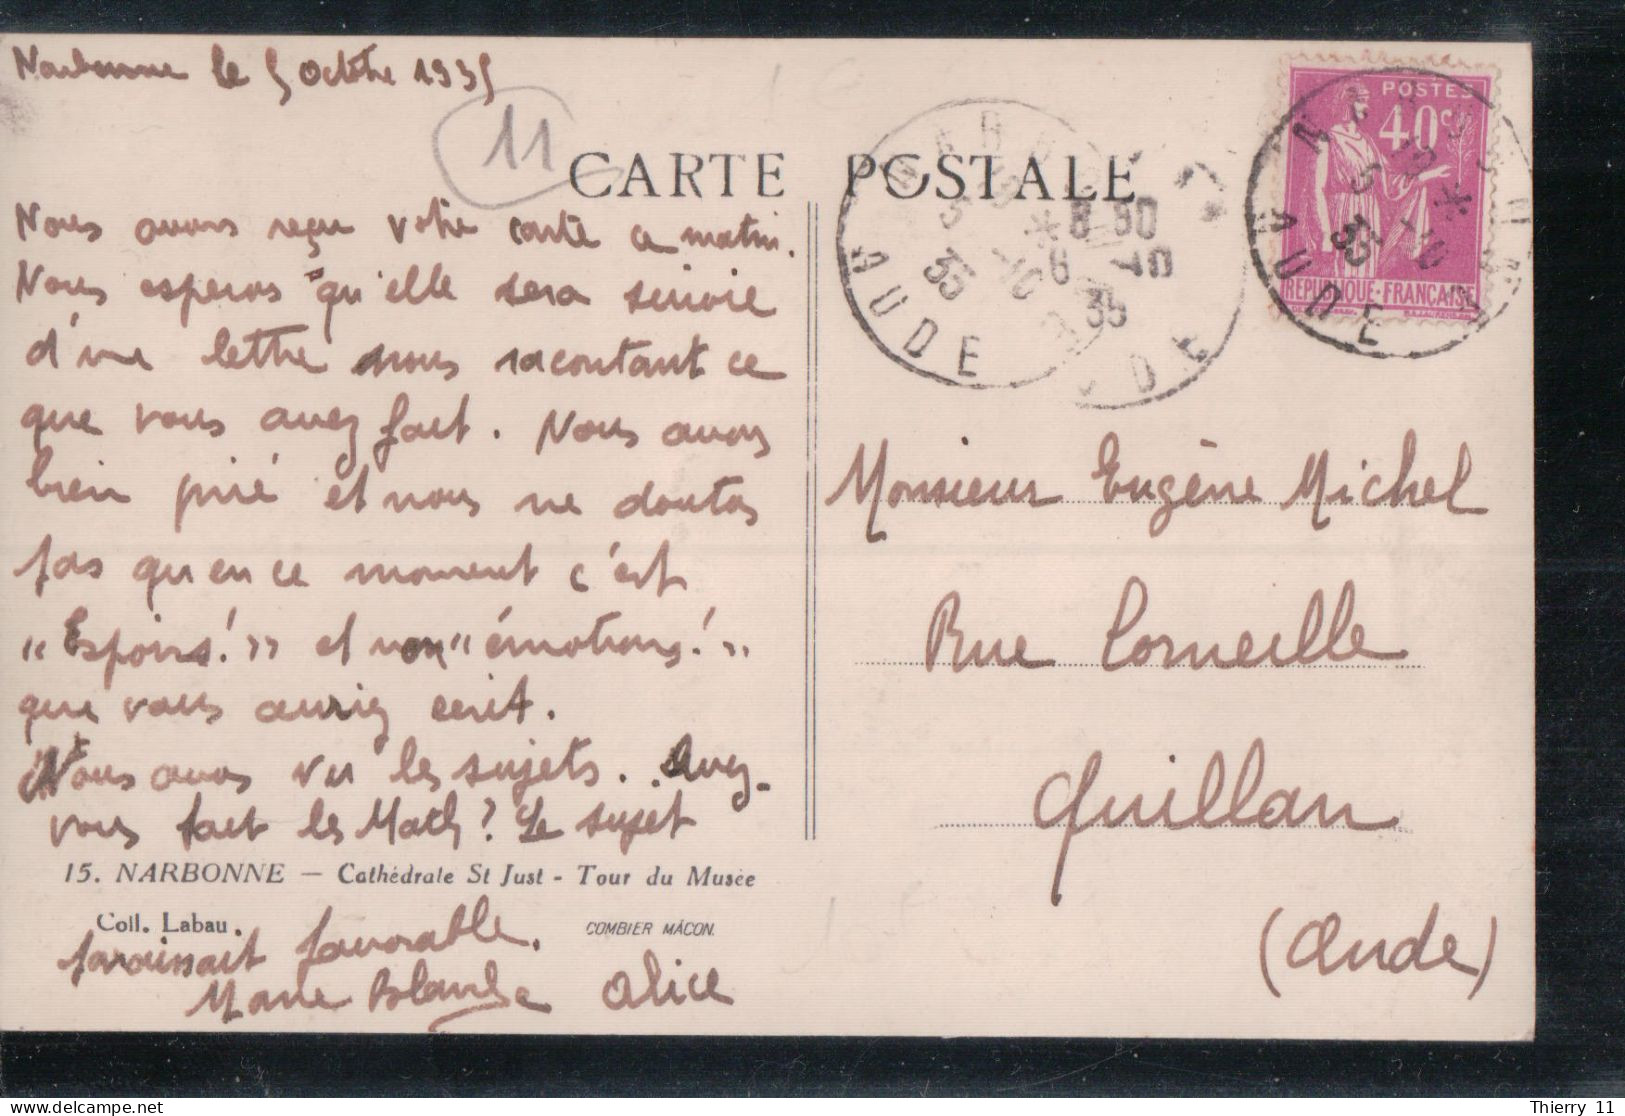 Narbonne le 5 octobre 1935
11
CARTE POSTALE
POSTES
40c
REPUBLIQUE·FRANÇAISE
NARBONNE
5 -10
35
AUDE
8 50
6 10
35
AUDE
NARBONNE
5 -10
35
AUDE
Nous avons reçu votre carte ce matin.
Nous esperons qu'elle sera suivie
d'une lettre nous racontant ce
que vous avez fait. Nous avons
bien prié et nous ne doutons
pas qu'en ce moment c'est
"Espoirs!" et non "émotions!"
que vous auriez écrit.
Nous avons vu les sujets. Avez-
vous fait les Math? Le sujet
paraissait favorable.
Marie Blanche Alice
15. NARBONNE — Cathédrale St Just - Tour du Musée
Coll. Labau.
COMBIER MÂCON.
Monsieur Eugène Michel
Rue Corneille
Quillan
(Aude)
Thierry 11